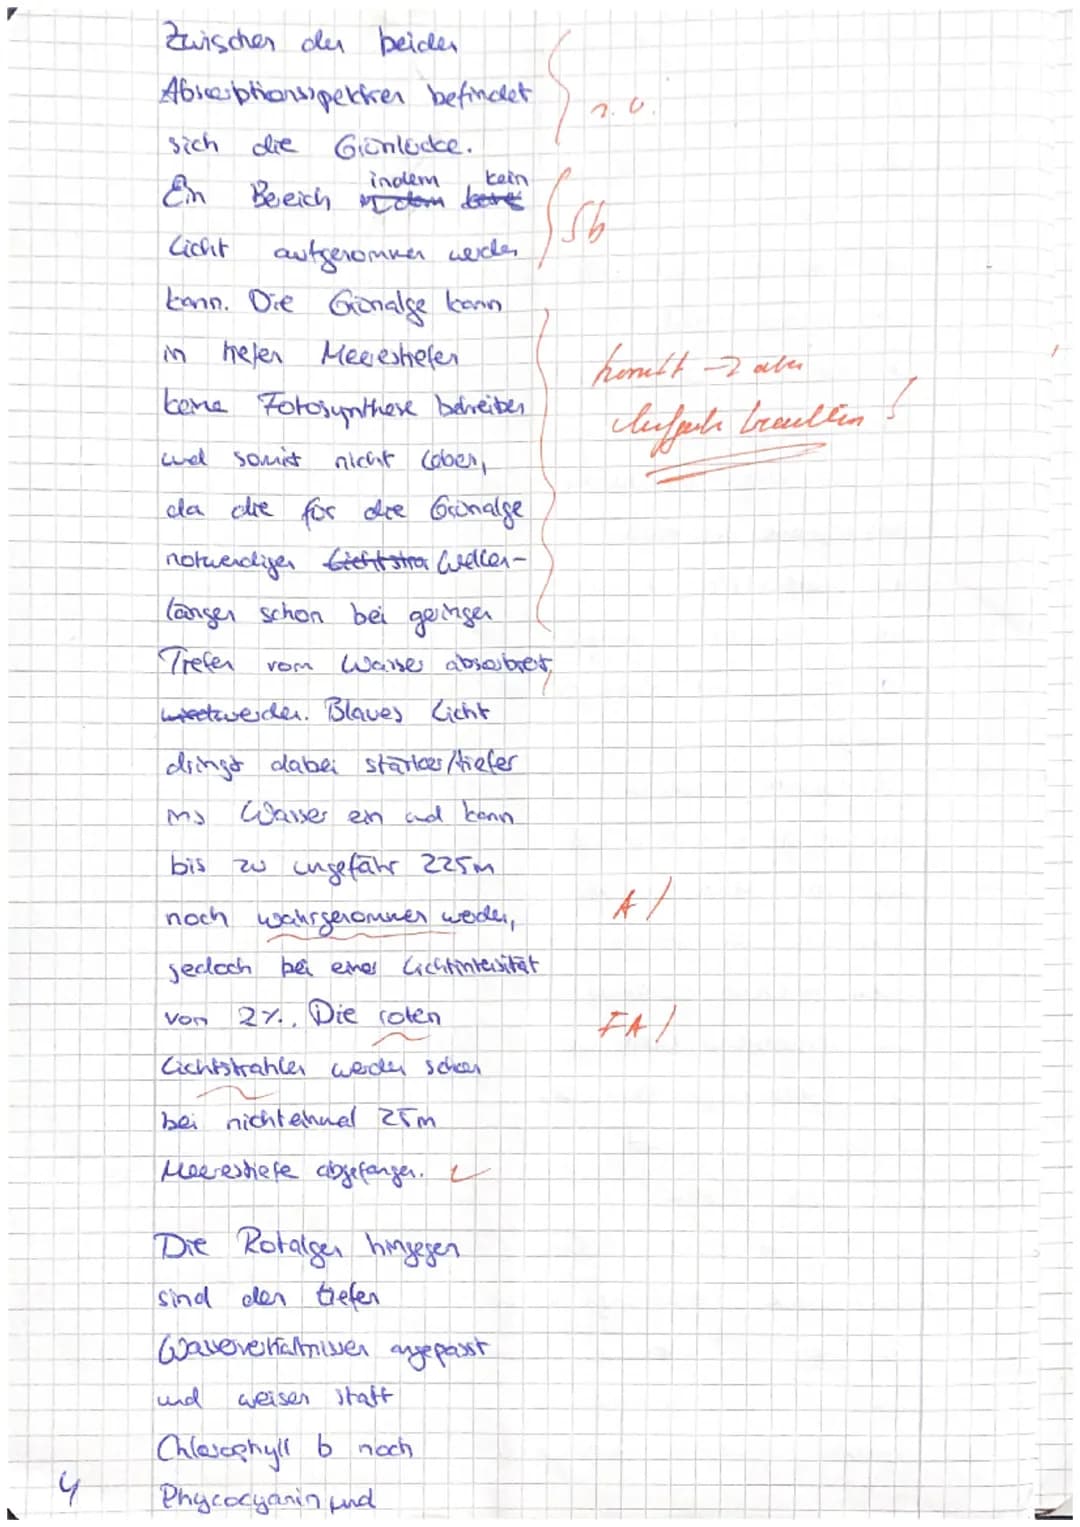 Zwischen den beiden
Absorbtionsspektren befindet
s.o.
sich die Grünlücke.
Ein Bereich indem kein
Sb
Licht aufgenommen werden
kann. Die Grünalge kann
in tiefen Meerestiefen
korrekt → aber
keine Fotosynthese betreiben
Aufgabe beachten!
und somit nicht leben,
da die für die Grünalge
notwendigen Lichtstra Wellen-
längen schon bei geringen
Tiefen vom Wasser absorbiert,
werden. Blaues Licht
dringt dabei stärker/tiefer
ins Wasser ein und kann
bis zu ungefähr 225m
noch wahrgenommen werden,
A/
jedoch bei einer Lichtintensität
von 2%. Die roten
FA/
Lichtstrahlen werden schon
bei nichteinmal 25m
Meerestiefe abgefangen. ✓
Die Rotalgen hingegen
sind den tiefen
Wasserverhältnissen angepasst
und weisen statt
Chlorophyll b noch
4
Phycocyanin und